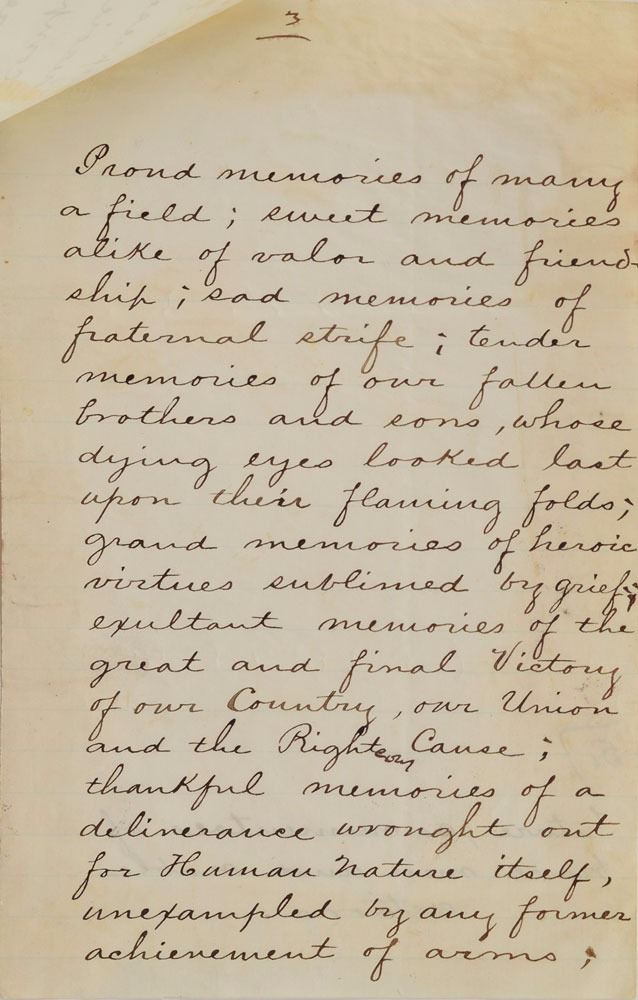 3
Proud memories of many
a field; sweet memories
alike of valor and friend-
ship; sad memories of
fraternal strife; tender
memories of our fallen
brothers and sons, whose
dying eyes looked last
upon their flaming folds;
grand memories of heroic
virtues sublimed by grief;
exultant memories of the
great and final Victory
of our Country, our Union
and the Righteous Cause;
thankful memories of a
deliverance wrought out
for Human Nature itself,
unexampled by any former
achievement of arms;